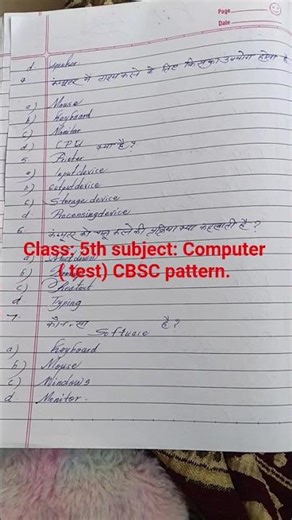 Page
Date
d speaker
4. कम्प्यूटर में टाइप करने के लिए किसका उपयोग होता है
a) Mouse
b) Keyboard
c) Monitor
d) CPU
5. Printer क्या है?
a) Input device
b) Output device
c) Storage device
d) Processing device
6. कम्प्यूटर को चालू करने की प्रक्रिया क्या कहलाती है?
Class; 5th subject: Computer
( test) CBSC pattern.
a) Shut down
b)
c) Restart
d Typing
7- कौन सा Software है?
a) Keyboard
b) Mouse
c) Windows
d Monitor.